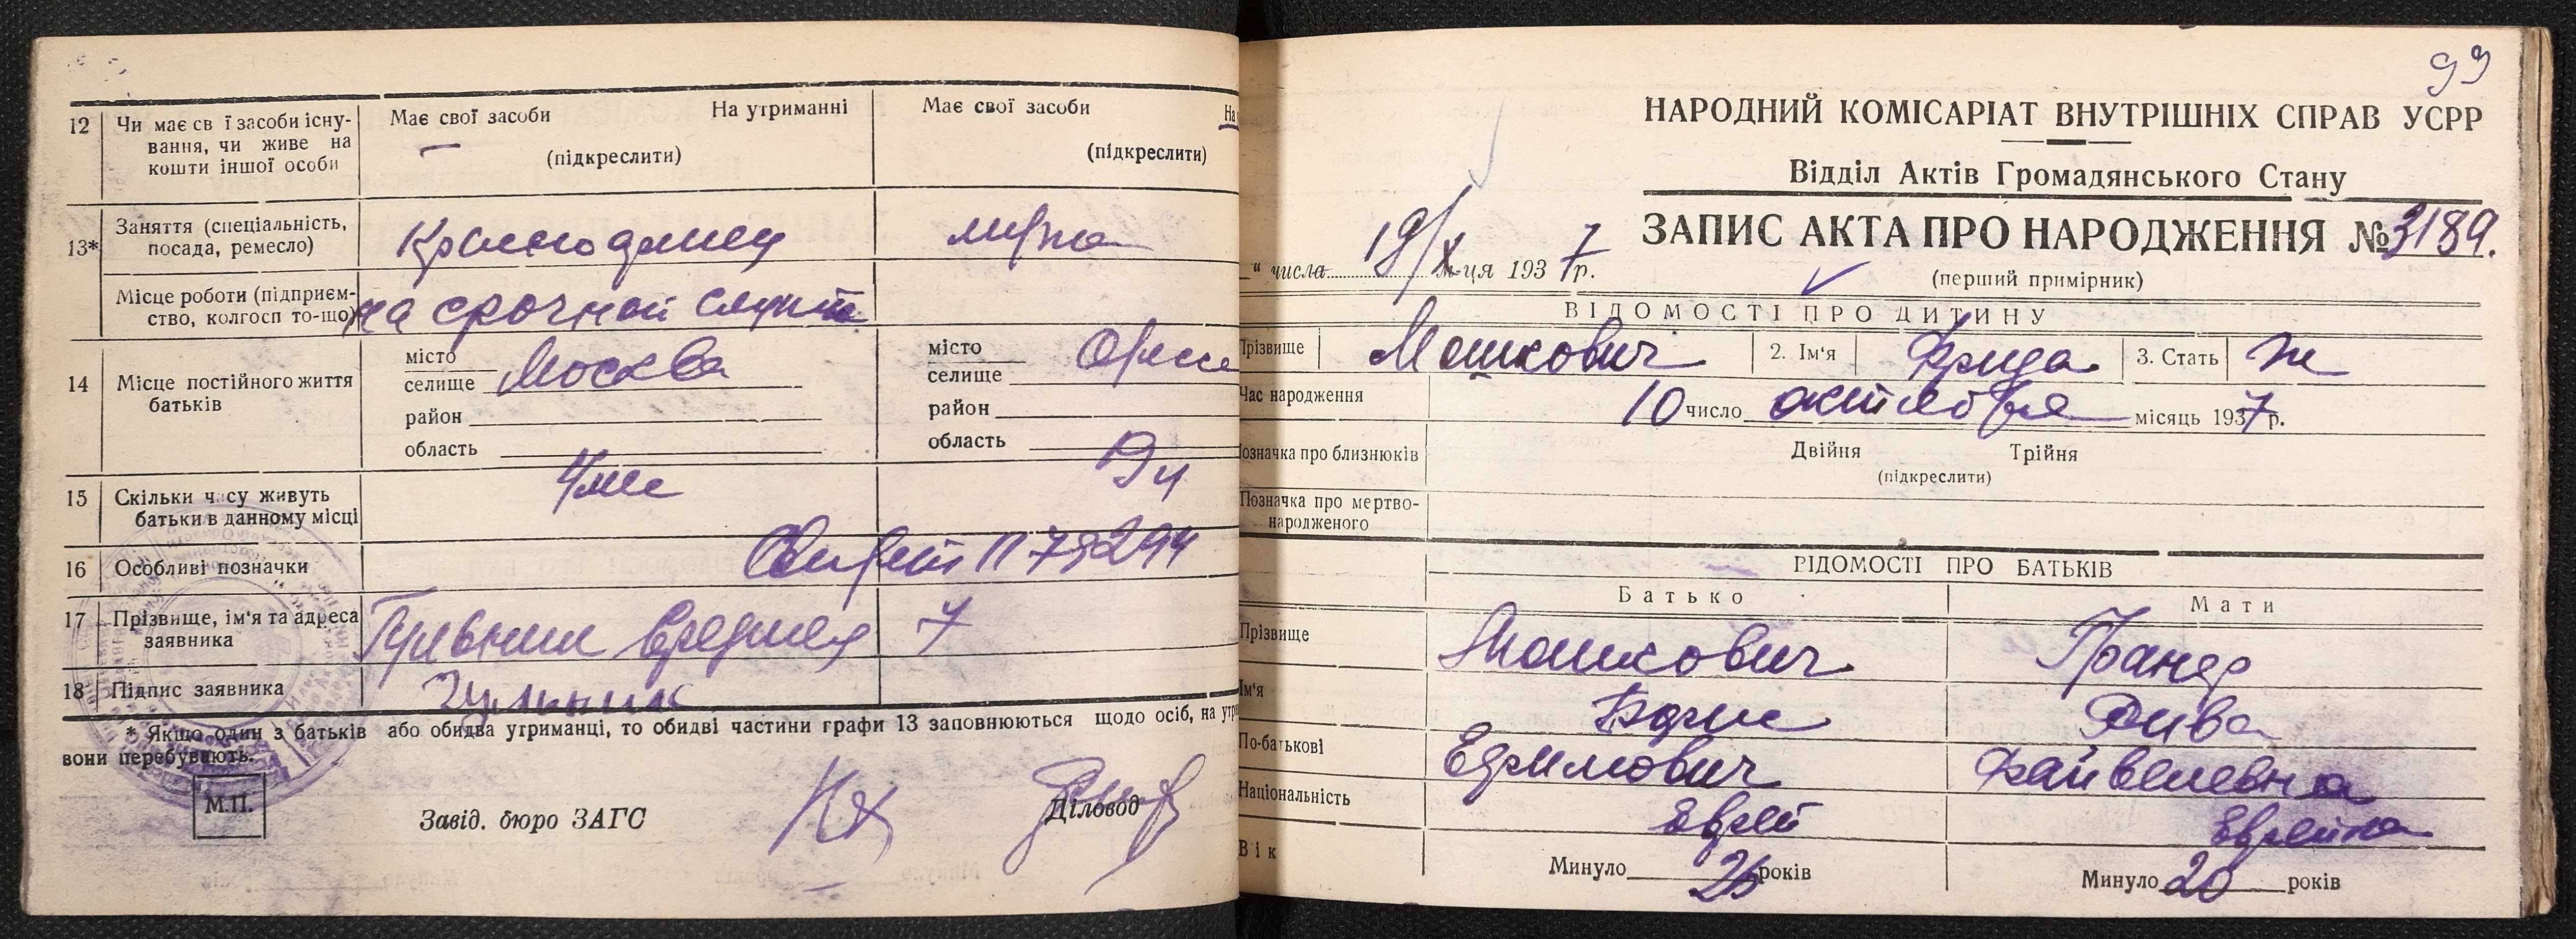 12 Чи має св ї засоби існу-
вання, чи живе на
кошти іншої особи
Має свої засоби На утриманні
(підкреслити)
Має свої засоби На
(підкреслити)
13* Заняття (спеціальність,
посада, ремесло)
Красноармеец
Місце роботи (підприєм-
ство, колгосп то-що)
на срочной службе
14 Місце постійного життя
батьків
місто
селище Москва
район
область
місто
селище
район
область
15 Скільки часу живуть
батьки в данному місці
16 Особливі позначки
17 Прізвище, ім'я та адреса
заявника
7
18 Підпис заявника
* Якщо один з батьків або обидва утриманці, то обидві частини графи 13 заповнюються щодо осіб, на утри
вони перебувають.
М.П.
Завід. бюро ЗАГС
Діловод
99
НАРОДНИЙ КОМІСАРІАТ ВНУТРІШНІХ СПРАВ УСРР
Відділ Актів Громадянського Стану
ЗАПИС АКТА ПРО НАРОДЖЕННЯ № 3189.
“ числа 19/X м-ця 1937 р.
(перший примірник)
ВІДОМОСТІ ПРО ДИТИНУ
Прізвище Мошкович 2. Ім'я Фрида 3. Стать ж
Час народження 10 число октября місяць 1937 р.
Позначка про близнюків
Двійня Трійня
(підкреслити)
Позначка про мертво-
народженого
ВІДОМОСТІ ПРО БАТЬКІВ
Батько Мати
Прізвище Мошкович Гранер
Ім'я Борис Рива
По-батькові Ефимович Файвелевна
Національність Еврей Еврейка
Вік Минуло років Минуло 20 років